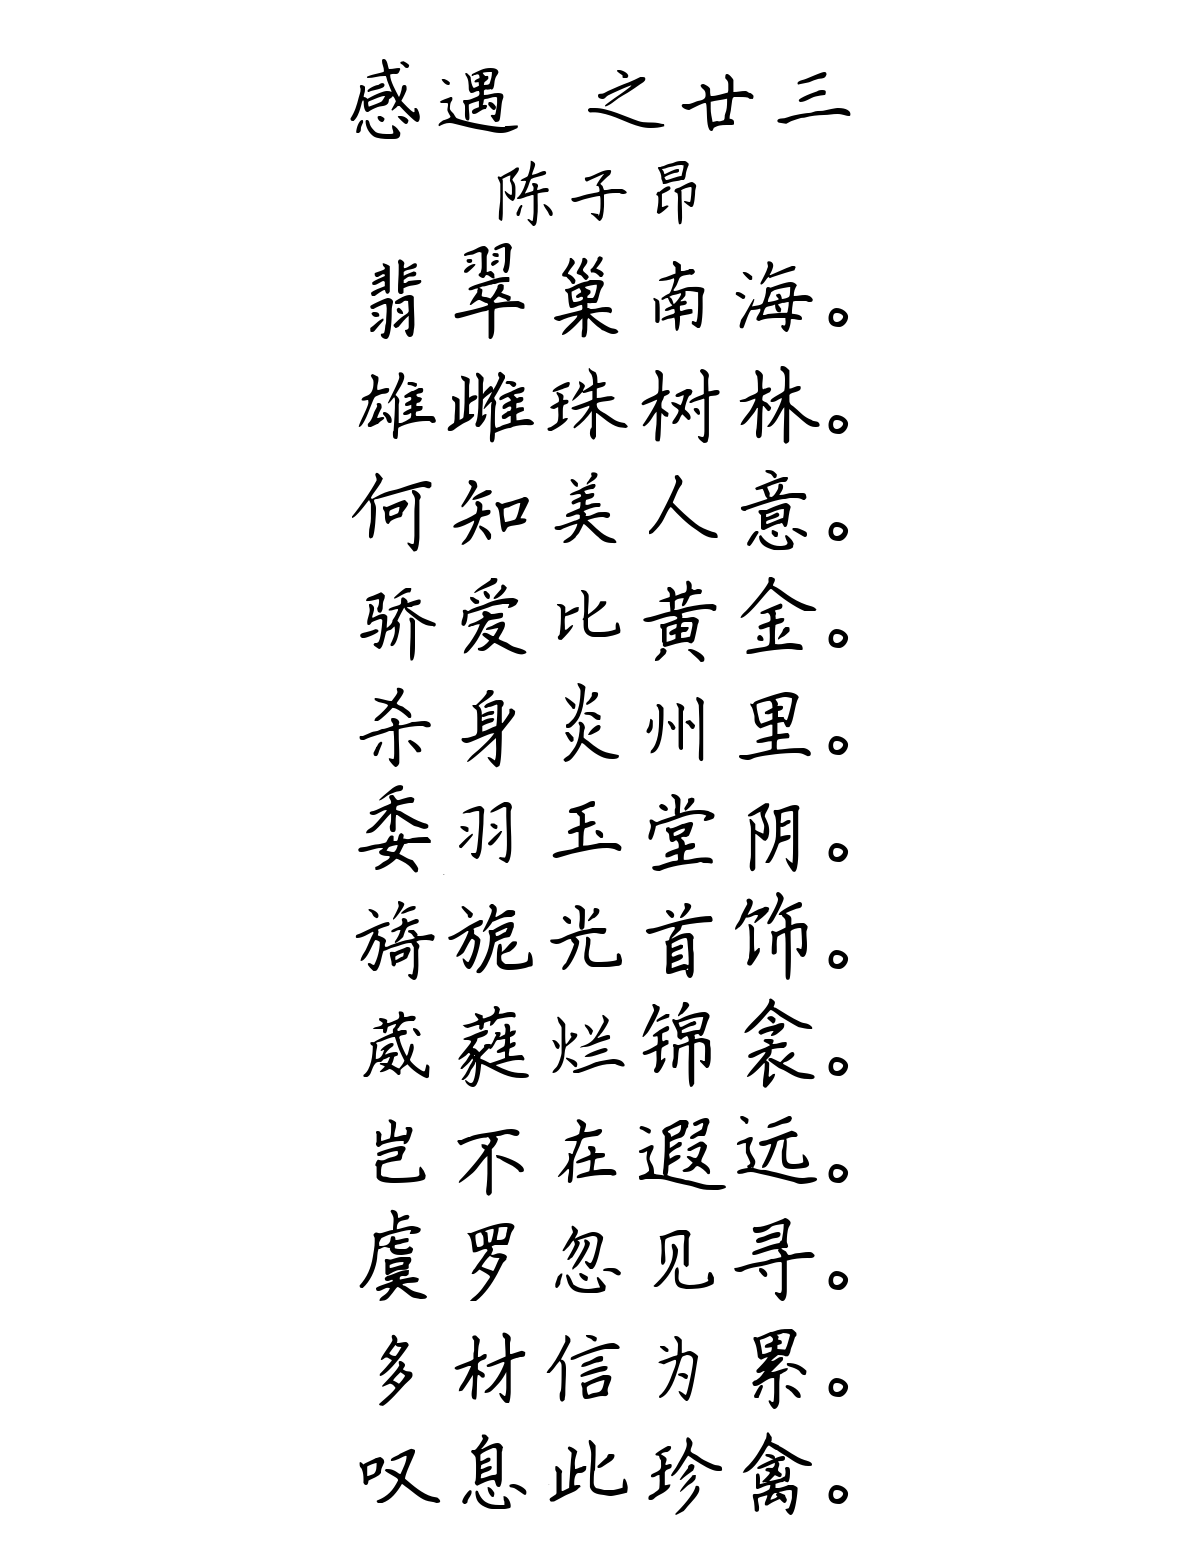 感遇 之廿三
陈子昂
翡翠巢南海。
雄雌珠树林。
何知美人意。
骄爱比黄金。
杀身炎州里。
委羽玉堂阴。
旖旎光首饰。
葳蕤烂锦衾。
岂不在遐远。
虞罗忽见寻。
多材信为累。
叹息此珍禽。